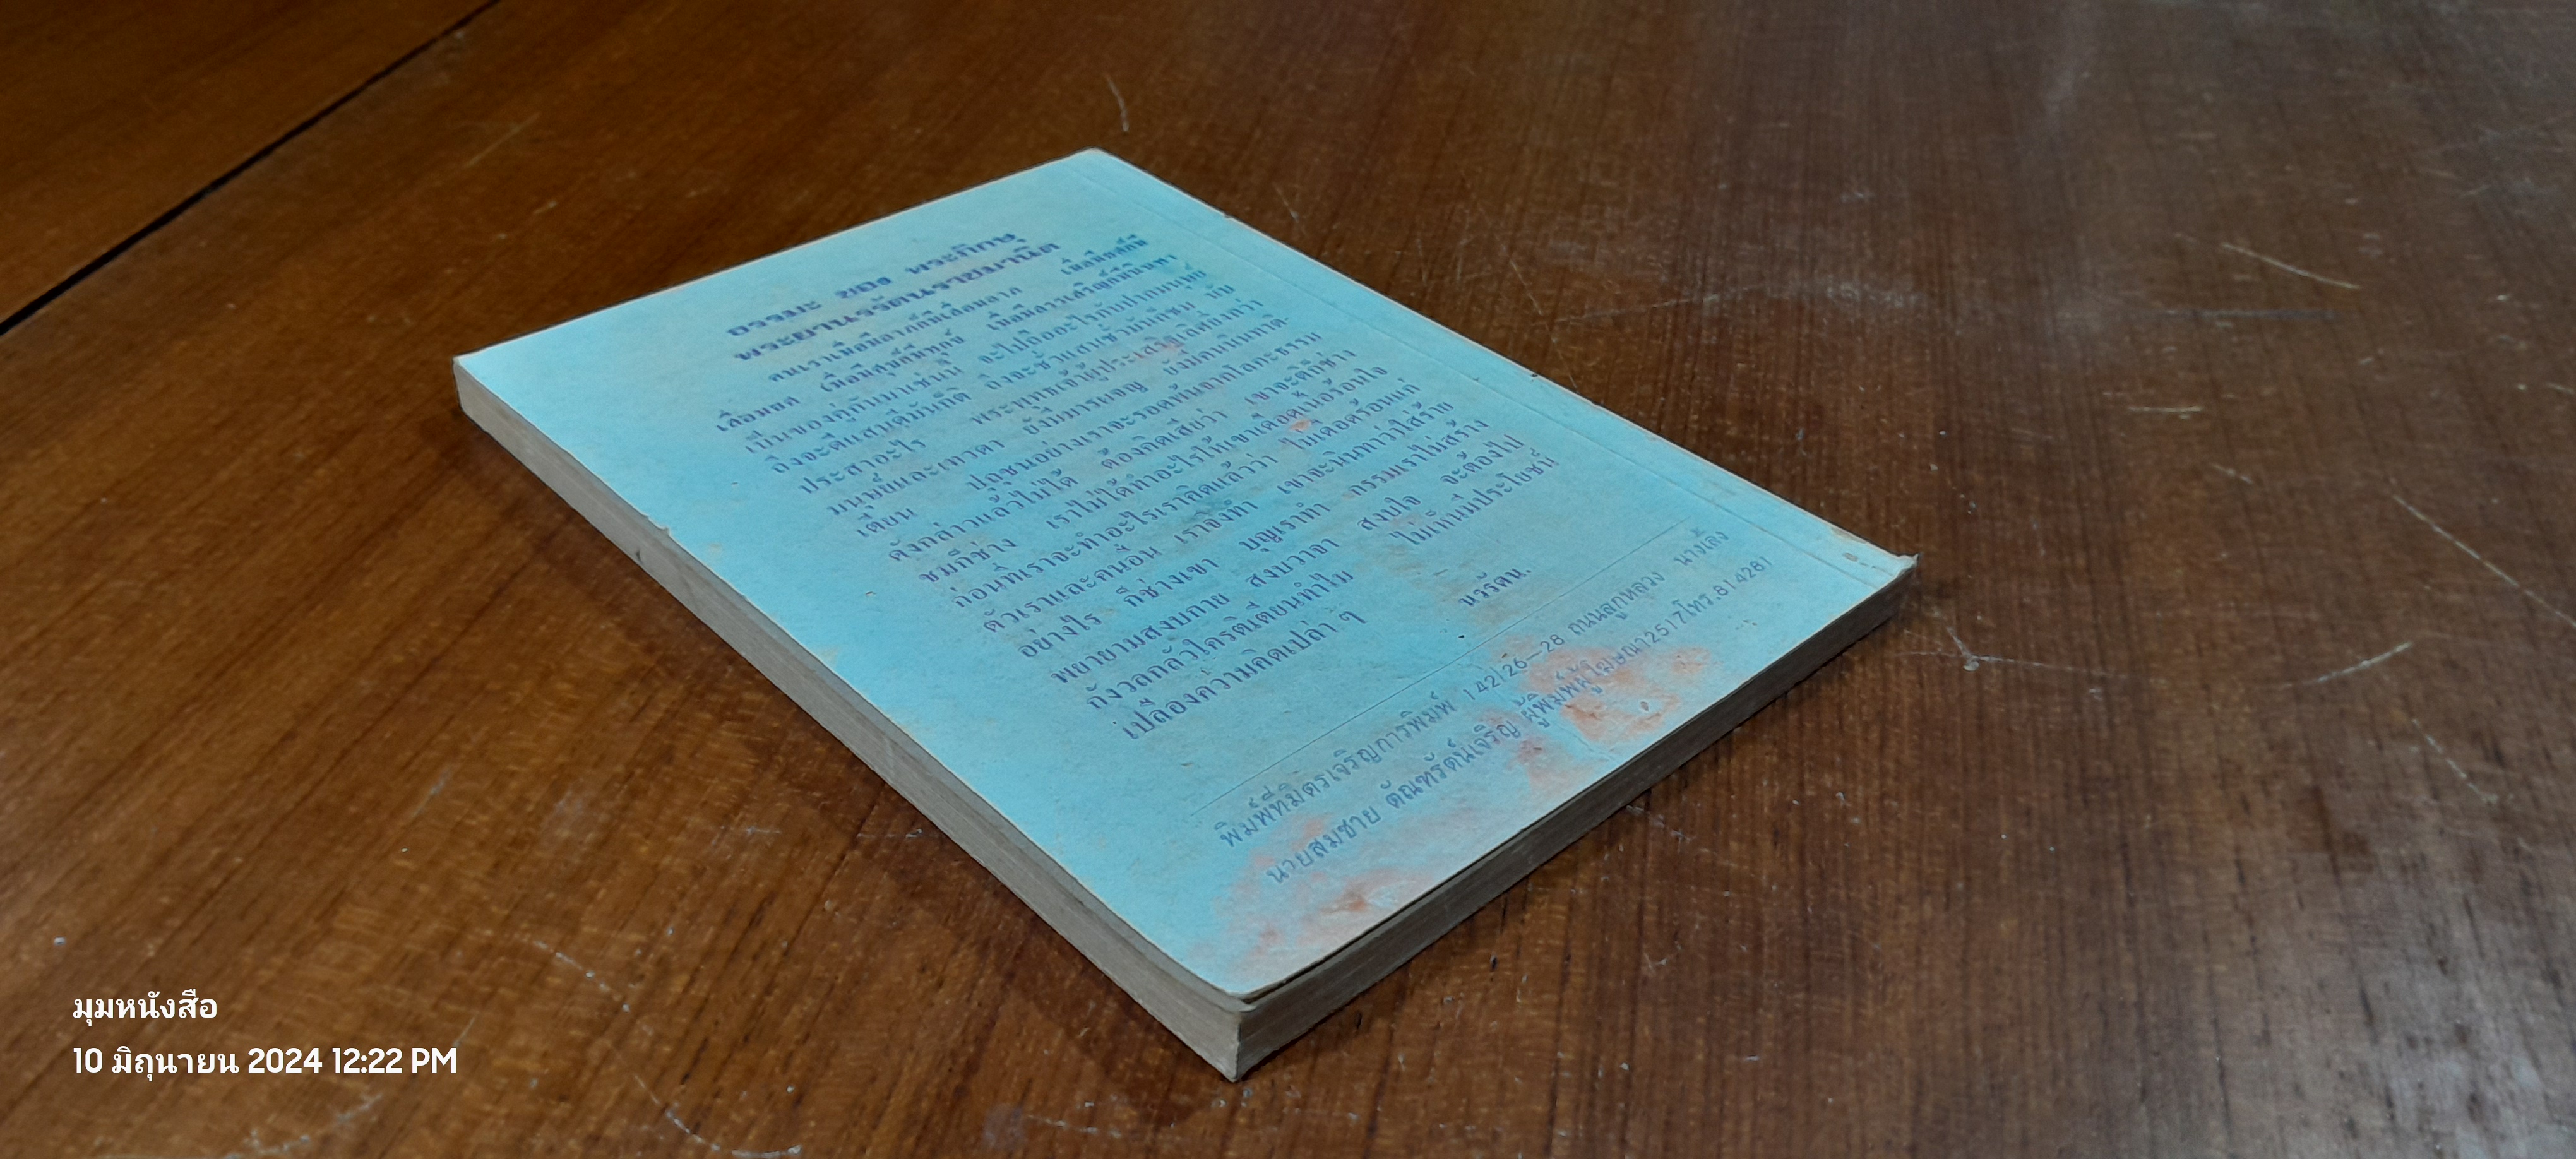 ธรรมะ ของ พระภิกษุ
พระยานรรัตนราชมานิต
คนเราเมื่อมีลาภก็มีเสื่อมลาภ เมื่อมียศก็มี
เสื่อมยศ เมื่อมีสุขก็มีทุกข์ เมื่อมีสรรเสริญก็มีนินทา
เป็นของคู่กันมาเช่นนี้ จะไปถืออะไรกับปากมนุษย์
ถึงจะดีแสนดีมันก็ติ ถึงจะชั่วแสนชั่วมันก็ชม นับ
ประสาอะไร พระพุทธเจ้าผู้ประเสริฐ เลิศยิ่งกว่า
มนุษย์และเทวดา ยังมีมารผจญ ยังมีคนนินทาติ-
เตียน ปุถุชนอย่างเราจะรอดพ้นจากโลกะธรรม
ดังกล่าวแล้วไม่ได้ ต้องคิดเสียว่า เขาจะติก็ช่าง
ชมก็ช่าง เราไม่ได้ทำอะไรให้เขาเดือดเนื้อร้อนใจ
ก่อนที่เราจะทำอะไรเราคิดแล้วว่า ไม่เดือดร้อนแก่
ตัวเราและคนอื่น เราจึงทำ เขาจะนินทาว่าใส่ร้าย
อย่างไร ก็ช่างเขา บุญเราทำ กรรมเราไม่สร้าง
พยายามสงบกาย สงบวาจา สงบใจ จะต้องไป
กังวลกลัวใครติเตียนทำไม ไม่เห็นมีประโยชน์
เปลืองความคิดเปล่า ๆ
นรรัตน.
พิมพ์ที่มิตรเจริญการพิมพ์ 142/26—28 ถนนลูกหลวง นางเลิ้ง
นายสมชาย ตัณฑรัตน์เจริญ ผู้พิมพ์ผู้โฆษณา2517โทร.814281
มุมหนังสือ
10 มิถุนายน 2024 12:22 PM